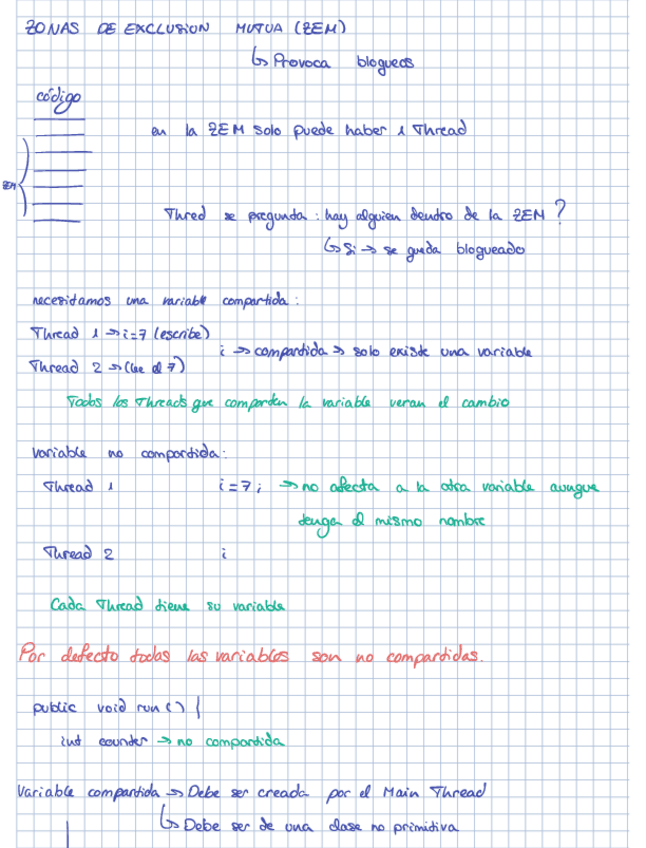 ZONAS DE EXCLUSION MUTUA (ZEM)
↳ Provoca bloqueos
código
en la ZEM solo puede haber 1 Thread
ZEM
Thred se pregunta: hay alguien dentro de la ZEM?
↳ Si → se queda bloqueado
necesitamos una variable compartida:
Thread 1 → i=7 (escribe)
i → compartida → solo existe una variable
Thread 2 → (lee el 7)
Todos los Threads que comparten la variable veran el cambio
Variable no compartida:
Thread 1 i=7; → no afecta a la otra variable aunque
tenga el mismo nombre
Thread 2 i
Cada Thread tiene su variable
Por defecto todas las variables son no compartidas.
public void run () {
int counter → no compartida
Variable compartida → Debe ser creada por el Main Thread
↳ Debe ser de una clase no primitiva